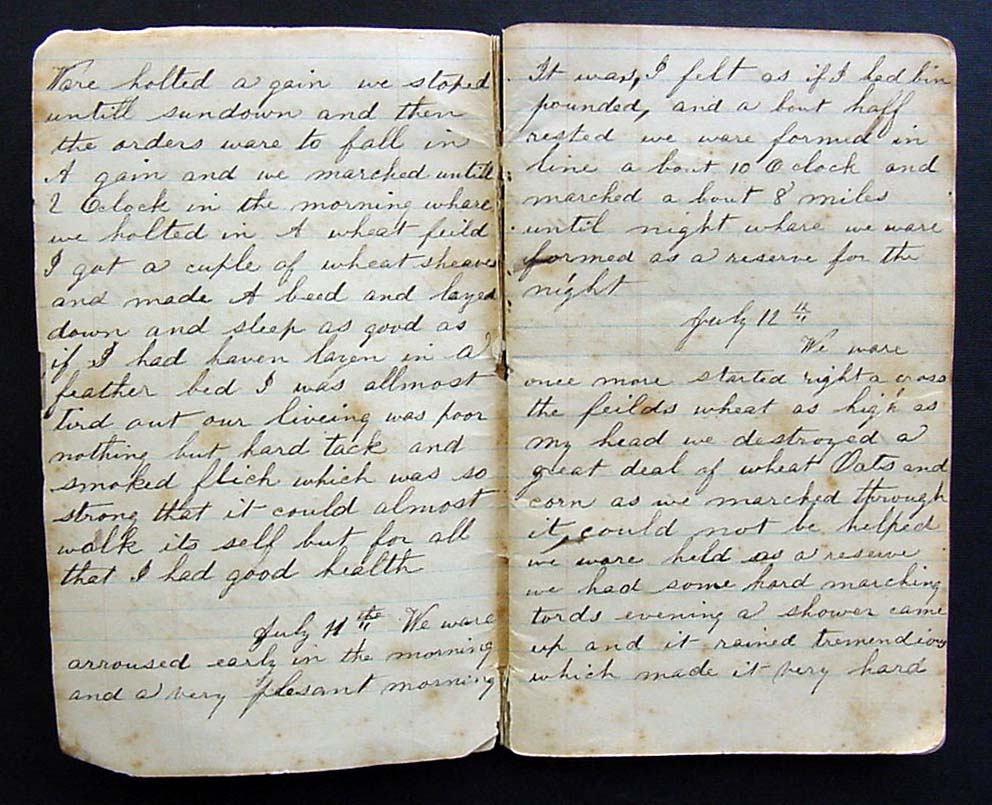 Ware holted a gain we stoped
untill sundown and then
the orders ware to fall in
A gain and we marched untill
2 Oclock in the morning whare
we holted in A wheat feild
I got a cuple of wheat sheaves
and made A beed and layed
down and sleep as good as
if I had haven layen in a
feather bed I was allmost
tird out our liveing was poor
nothing but hard tack and
smoked flich which was so
strong that it could almost
walk its self but for all
that I had good health
July 11th We ware
arroused early in the morning
and a very plesant morning
It was, I felt as if I had bin
pounded, and a bout haff
rested we ware formed in
line a bout 10 Oclock and
marched a bout 8 miles
until night whare we ware
formed as a reserve for the
night
July 12th
We ware
once more started right a cross
the feilds wheat as high as
my head we destroyed a
great deal of wheat Oats and
corn as we marched through
it, could not be helped
we ware held as a reserve
we had some hard marching
tords evening a shower came
up and it rained tremendious
which made it very hard